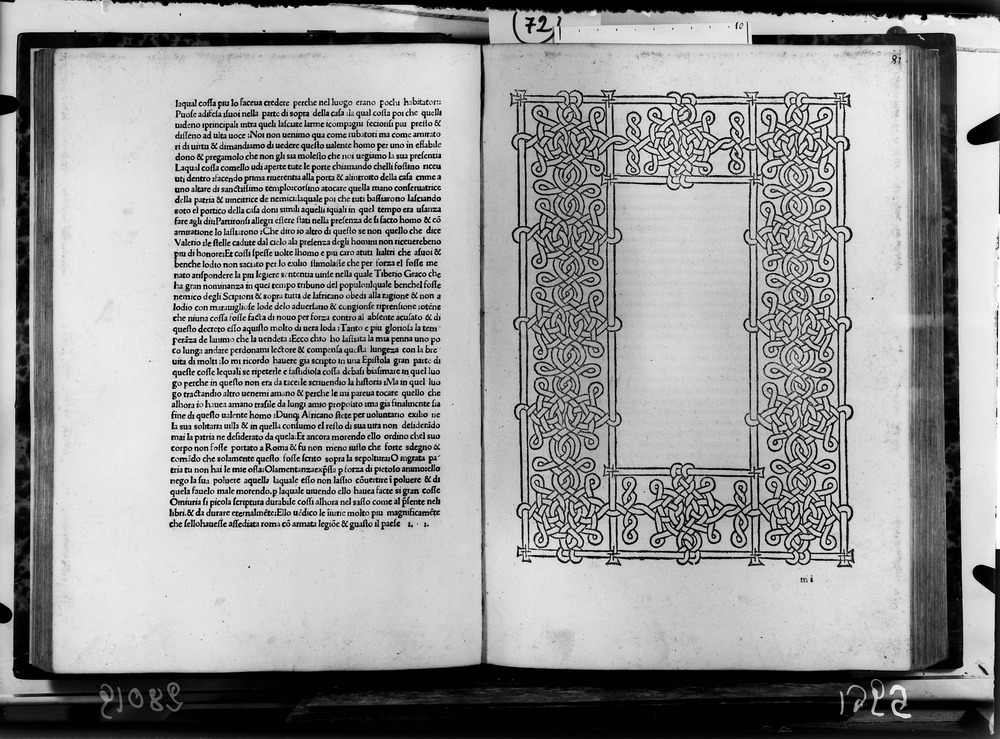 (72)
10
81
laqual cossa piu lo faceua credere perche nel luogo erano pochi habitatori:
Puose adifesa isuoi nella parte di sopra della casa :la qual cossa poi che quelli
uideno iprincipali intra queli lasciate larme icompagni feciõnsi piu presso &
disseno ad alta uoce :Noi non uenimo qua come rubatori ma come amirato
ri di uirtu & dimandiamo di uedere questo ualente homo per uno inestabile
dono & pregamolo che non gli sia molesto che noi uegiamo la sua presentia
Laqual cossa comello udi aperte tute le porte chiamando chelli fossino riceu
uti dentro :facendo prima riuerentia alla porta & alintroito della casa cume a
uno altare di sanctissimo templo:corsino atocare quella mano conseruatrice
della patria & uincitrice de nemici:laquale poi che tuti bassiarono lasciando
soto el portico della casa doni simili aquelli iquali in quel tempo era usanza
fare agli dii:Partironsi allegri essere stati nella presenza de si facto homo & cõ
amiratione lo lassiarono :Che diro io altro di questo se non quello che dice
Valerio :le stelle cadute dal cielo ala presenza degli homini non riceuerebeno
piu di honore:Et cossi spesse uolte lhomo e piu caro atuti laltri che asuoi &
benche lodio non saciato per lo exilio stimolasse che per forza el fosse me
nato arispondere la piu legiere sententia uinse nella quale Tiberio Graco che
ha gran nominanza in quei tempo tribuno del populo:ilquale benchel fosse
nemico degli Scipioni & sopra tutti de lafricano obedi alla ragione & non a
lodio con marauigliose lode delo aduersario & congionse riprensione :oténe
che niuna cossa fosse facta di nouo per forza contro al absente acusato & di
questo decreto esso aquisto molto di uera loda :Tanto e piu gloriosa la tem
perãza de lanimo che la uendeta :Ecco chio ho lassiata la mia penna uno po
co lungi andare perdonami lectore & compensa questa lungeza con la bre
uita di molti :Io mi ricordo hauere gia scripto in una Epistola gran parte di
queste cosse lequali se ripeterle e fastidiosa cossa debasi biasimare in quel luo
go perche in questo non era da tacerle scriuendio la historia :Ma in quel luo
go tractandio altro uenemi amano & perche le mi pareua tocare quello che
alhora io haueа amano trasile da lungi amio proposito :ma gia finalmente sia
fine di questo ualente homo :Dunq; Africano stete per uoluntario exilio ne
la sua solitaria uilla & in quella consumo el resto di sua uita non desiderãdo
mai la patria ne desiderato da quela:Et ancora morendo ello ordino chel suo
corpo non fosse portato a Roma & fu non meno iusto che forte sdegno &
comãdo che solamente questo fosse scrito sopra la sepoltura:O ingrata pa
tria tu non hai le mie ossa:Olamentanza exp̃ssa p forza di pietoso animo:ello
nego la sua poluere aquella laquale esso non lassio cõuertire ĩ poluere & di
quela fauelo male morendo.p laquale uiuendo ello hauea facte si gran cosse
O iniuria si picola scriptura durabile cossi alhora nel sasso come al p̃sente neli
libri.& da durare eternalmẽte:Ello uẽdico le iiurie molto piu magnificamẽte
che sellohauesse assediata roma cõ armata legiõe & guasto il paese 1. · 1.
m i
28019
15951